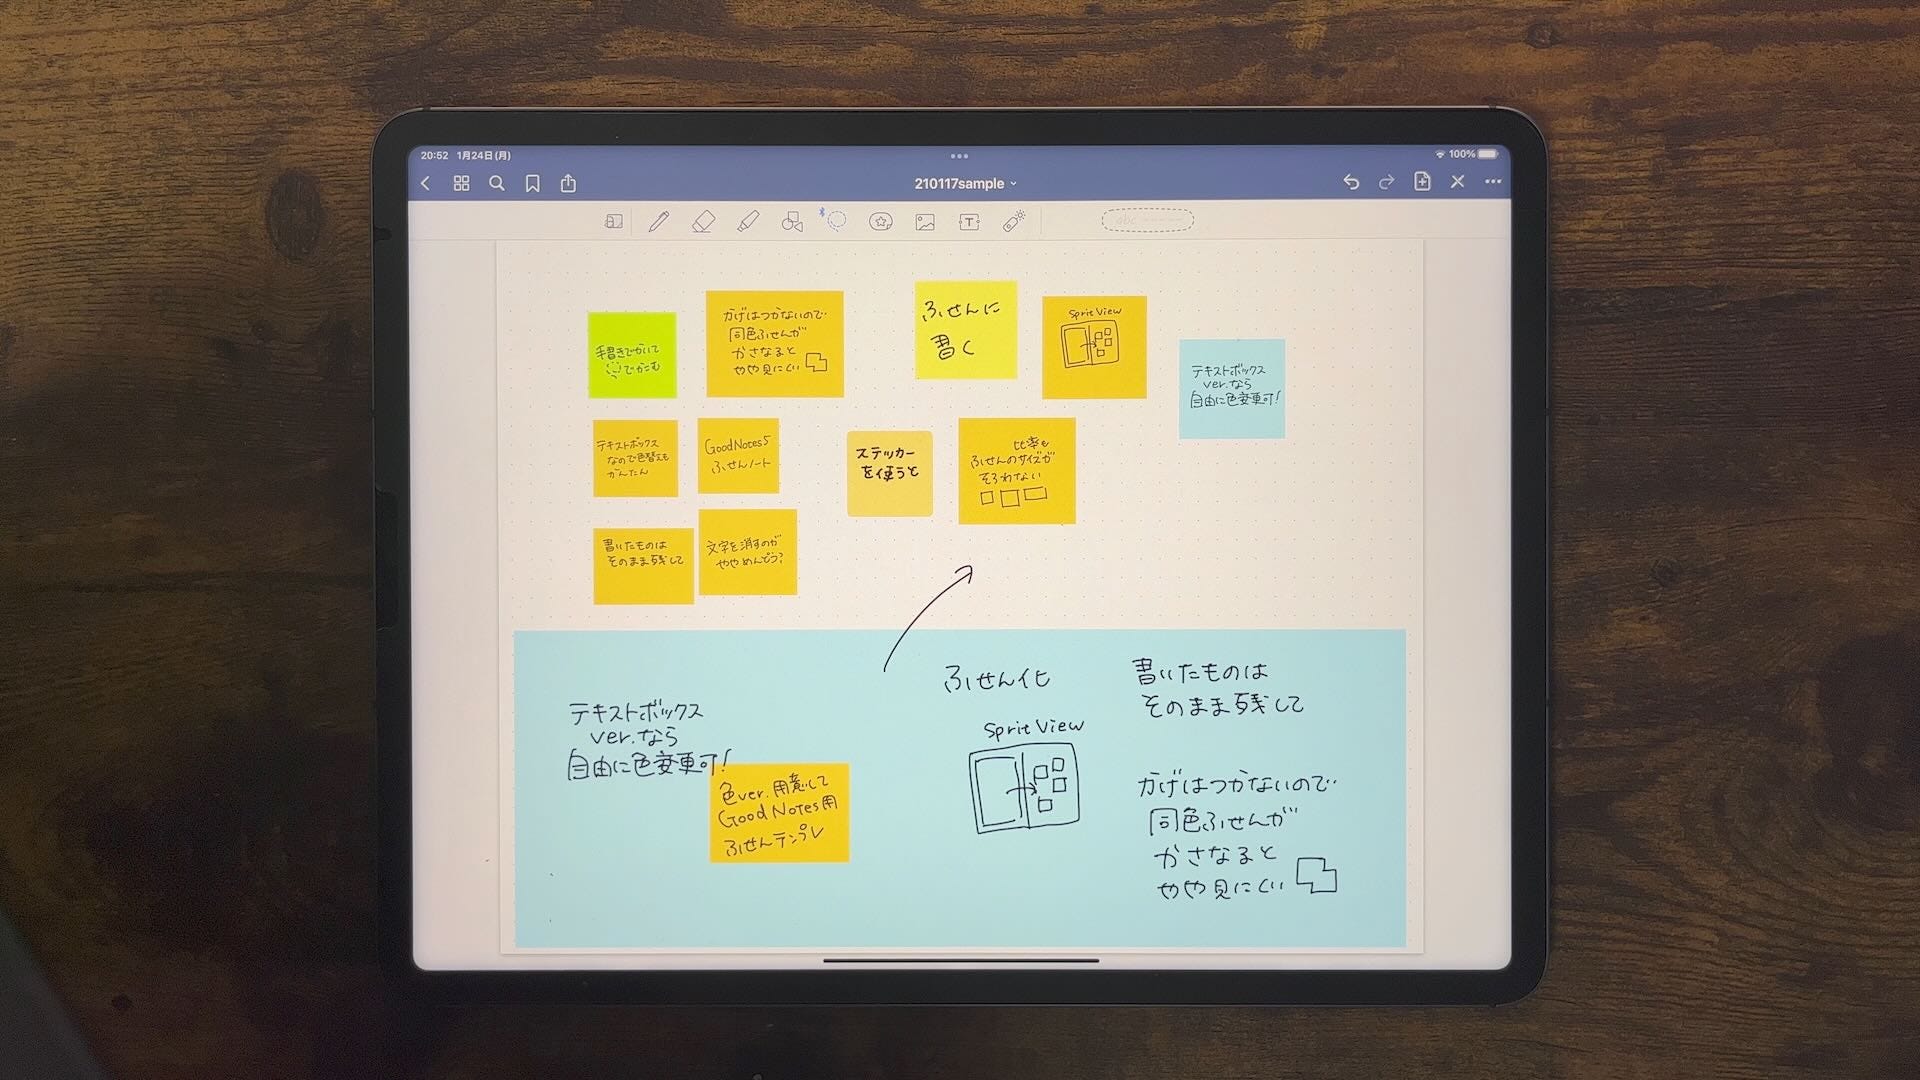 20:52 1月24日(月)
100%
210117sample
手書きでかいて
でかこむ
かげはつかないので
同色ふせんが
かさなると
やや見にくい
ふせんに
書く
Sprit View
テキストボックス
ver.なら
自由に色変更可!
テキストボックス
なので色替えも
かんたん
GoodNotes5
ふせんノート
ステッカー
を使うと
比率も
ふせんのサイズが
そろわない
書いたものは
そのまま残して
文字を消すのが
ややめんどう?
テキストボックス
ver.なら
自由に色変更可!
色ver.用意して
GoodNotes用
ふせんテンプレ
ふせん化
Sprit View
書いたものは
そのまま残して
かげはつかないので
同色ふせんが
かさなると
やや見にくい